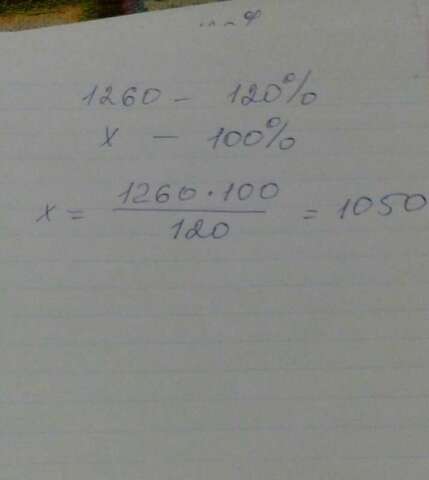 1260 - 120%
x - 100%
x = 1260 · 100 / 120 = 1050